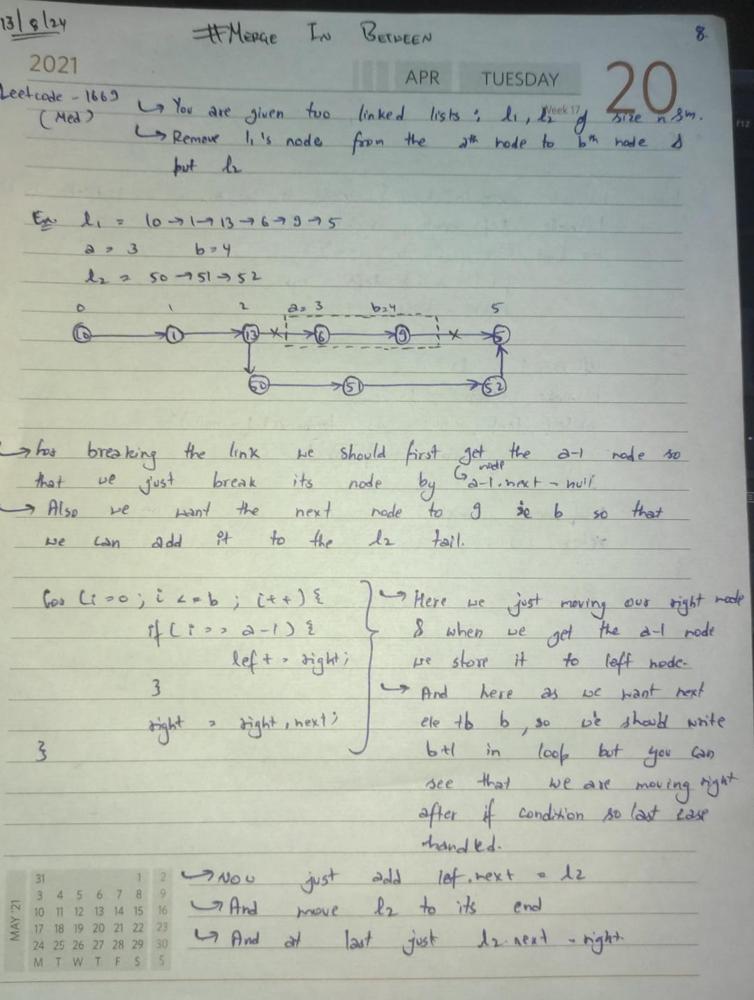 13/8/24
#MERGE IN BETWEEN
8.
2021
APR TUESDAY 20
Week 17
Leetcode - 1669
(Med)
↳ You are given two linked lists: l1, l2 of size n & m.
↳ Remove l1's node from the ath node to bth node &
put l2
Ex. l1 = 10 → 1 → 13 → 6 → 9 → 5
a = 3 b = 4
l2 = 50 → 51 → 52
0 1 2 a=3 b=4 5
10 1 13 × 6 9 × 5
50 51 52
↳ for breaking the link we should first get the a-1 node so
that we just break its node by a-1.next = null
node
↳ Also we want the next node to 9 ie b so that
we can add it to the l2 tail.
for (i=0; i <= b; i++) {
if (i == a-1) {
left = right;
}
right = right.next;
}
↳ Here we just moving our right node
& when we get the a-1 node
we store it to left node.
↳ And here as we want next
ele to b, so we should write
b+1 in loop but you can
see that we are moving right
after if condition so last case
handled.
↳ Now just add lef.next = l2
↳ And move l2 to its end
↳ And at last just l2.next = right.
MAY '21
31 1 2
3 4 5 6 7 8 9
10 11 12 13 14 15 16
17 18 19 20 21 22 23
24 25 26 27 28 29 30
M T W T F S S
F12